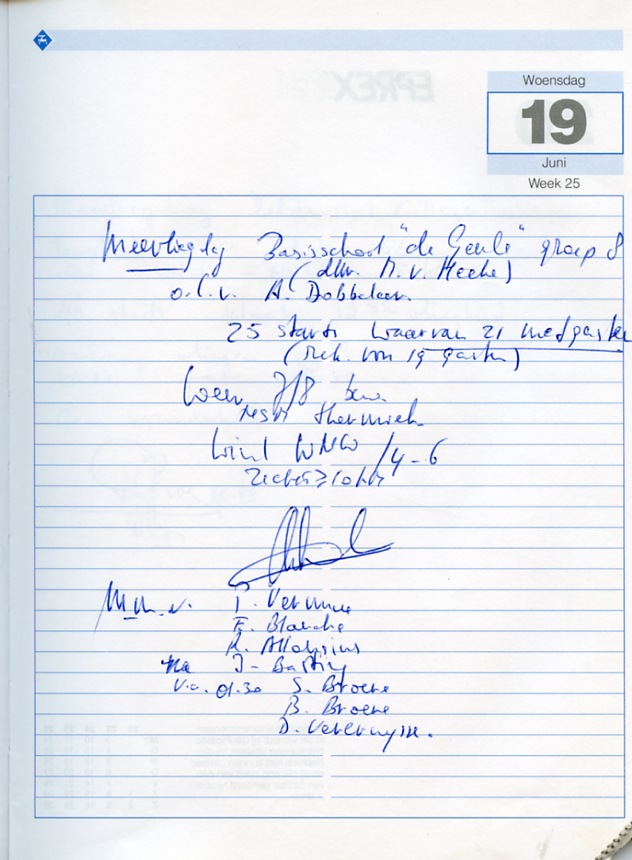 Woensdag
19
Juni
Week 25
Meevliegdag Basisschool "de Geule" groep 8
(dhr. M. v. Hecke)
o.l.v. A. Dobbelaer
25 starts waarvan 21 met gasten
(rek. van 19 gasten)
Weer 7/8 bew.
thermiek
Wind WNW /4-6
Zicht ≥ 10 km
M.m.v. P. Vermeire
F. Blanche
R. Alloysius
na J. Bastin
v.a. 01.30 S. Broeke
B. Broeke
D. Vercruysse.